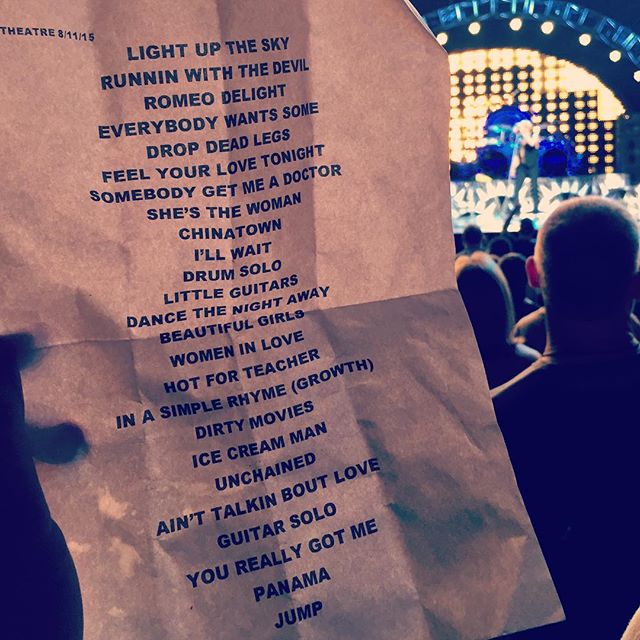 THEATRE 8/11/15
LIGHT UP THE SKY
RUNNIN WITH THE DEVIL
ROMEO DELIGHT
EVERYBODY WANTS SOME
DROP DEAD LEGS
FEEL YOUR LOVE TONIGHT
SOMEBODY GET ME A DOCTOR
SHE'S THE WOMAN
CHINATOWN
I'LL WAIT
DRUM SOLO
LITTLE GUITARS
DANCE THE NIGHT AWAY
BEAUTIFUL GIRLS
WOMEN IN LOVE
HOT FOR TEACHER
IN A SIMPLE RHYME (GROWTH)
DIRTY MOVIES
ICE CREAM MAN
UNCHAINED
AIN'T TALKIN BOUT LOVE
GUITAR SOLO
YOU REALLY GOT ME
PANAMA
JUMP